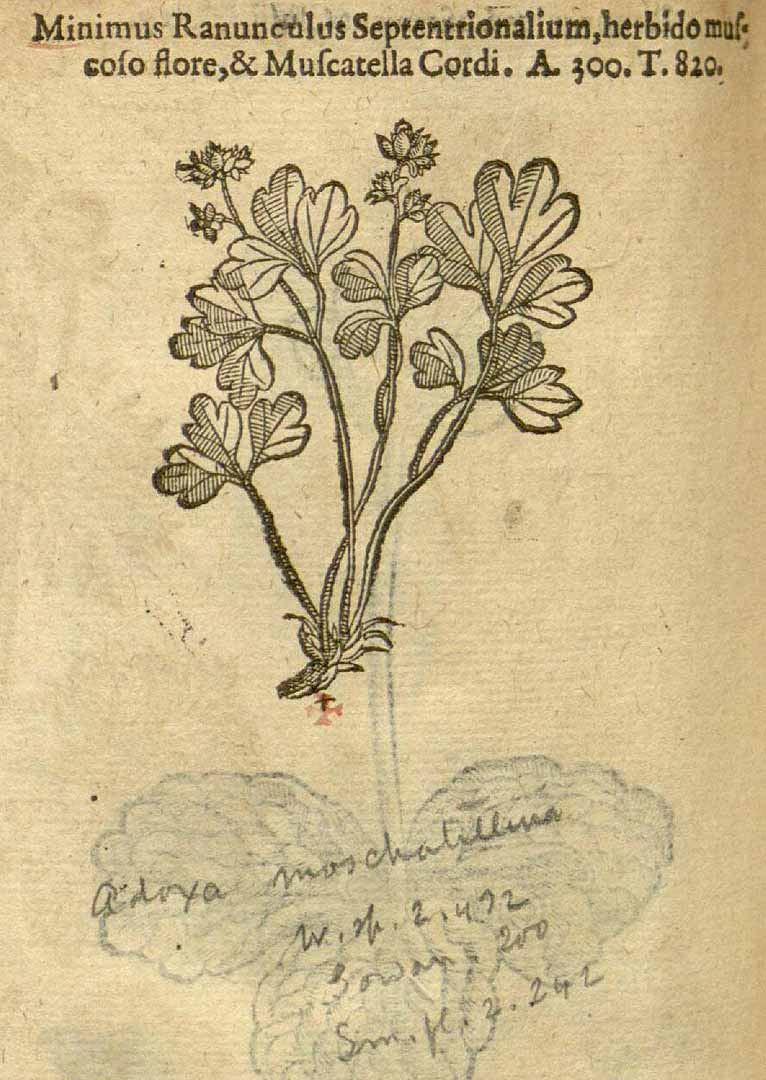 Minimus Ranunculus Septentrionalium, herbido muſ-
coſo flore, & Muſcatella Cordi. A. 300. T. 820.
Adoxa moschatillina
W. sp. 2. 492
200
Sm. fl. 2. 242